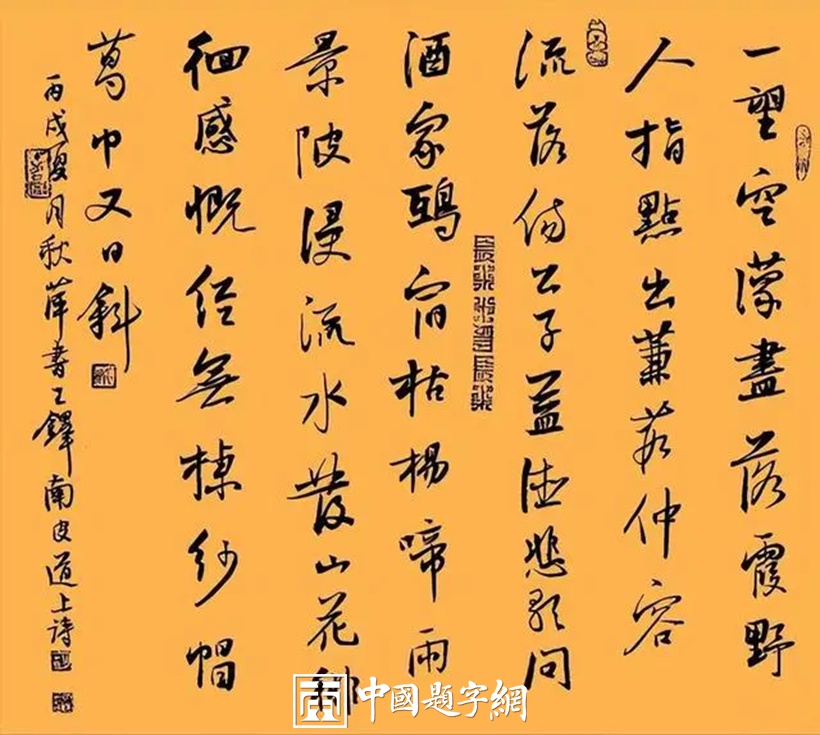 一望空濛盡落霞野
人指點出蒹葭仲容
流落傷公子益德悲歌問
酒家鴉宿枯楊啼雨
景陂浸流水發山花
徊感慨無紗帽
葛巾又日斜
丙戌夏月秋萍書王鐸南皮道上詩
中國題字網